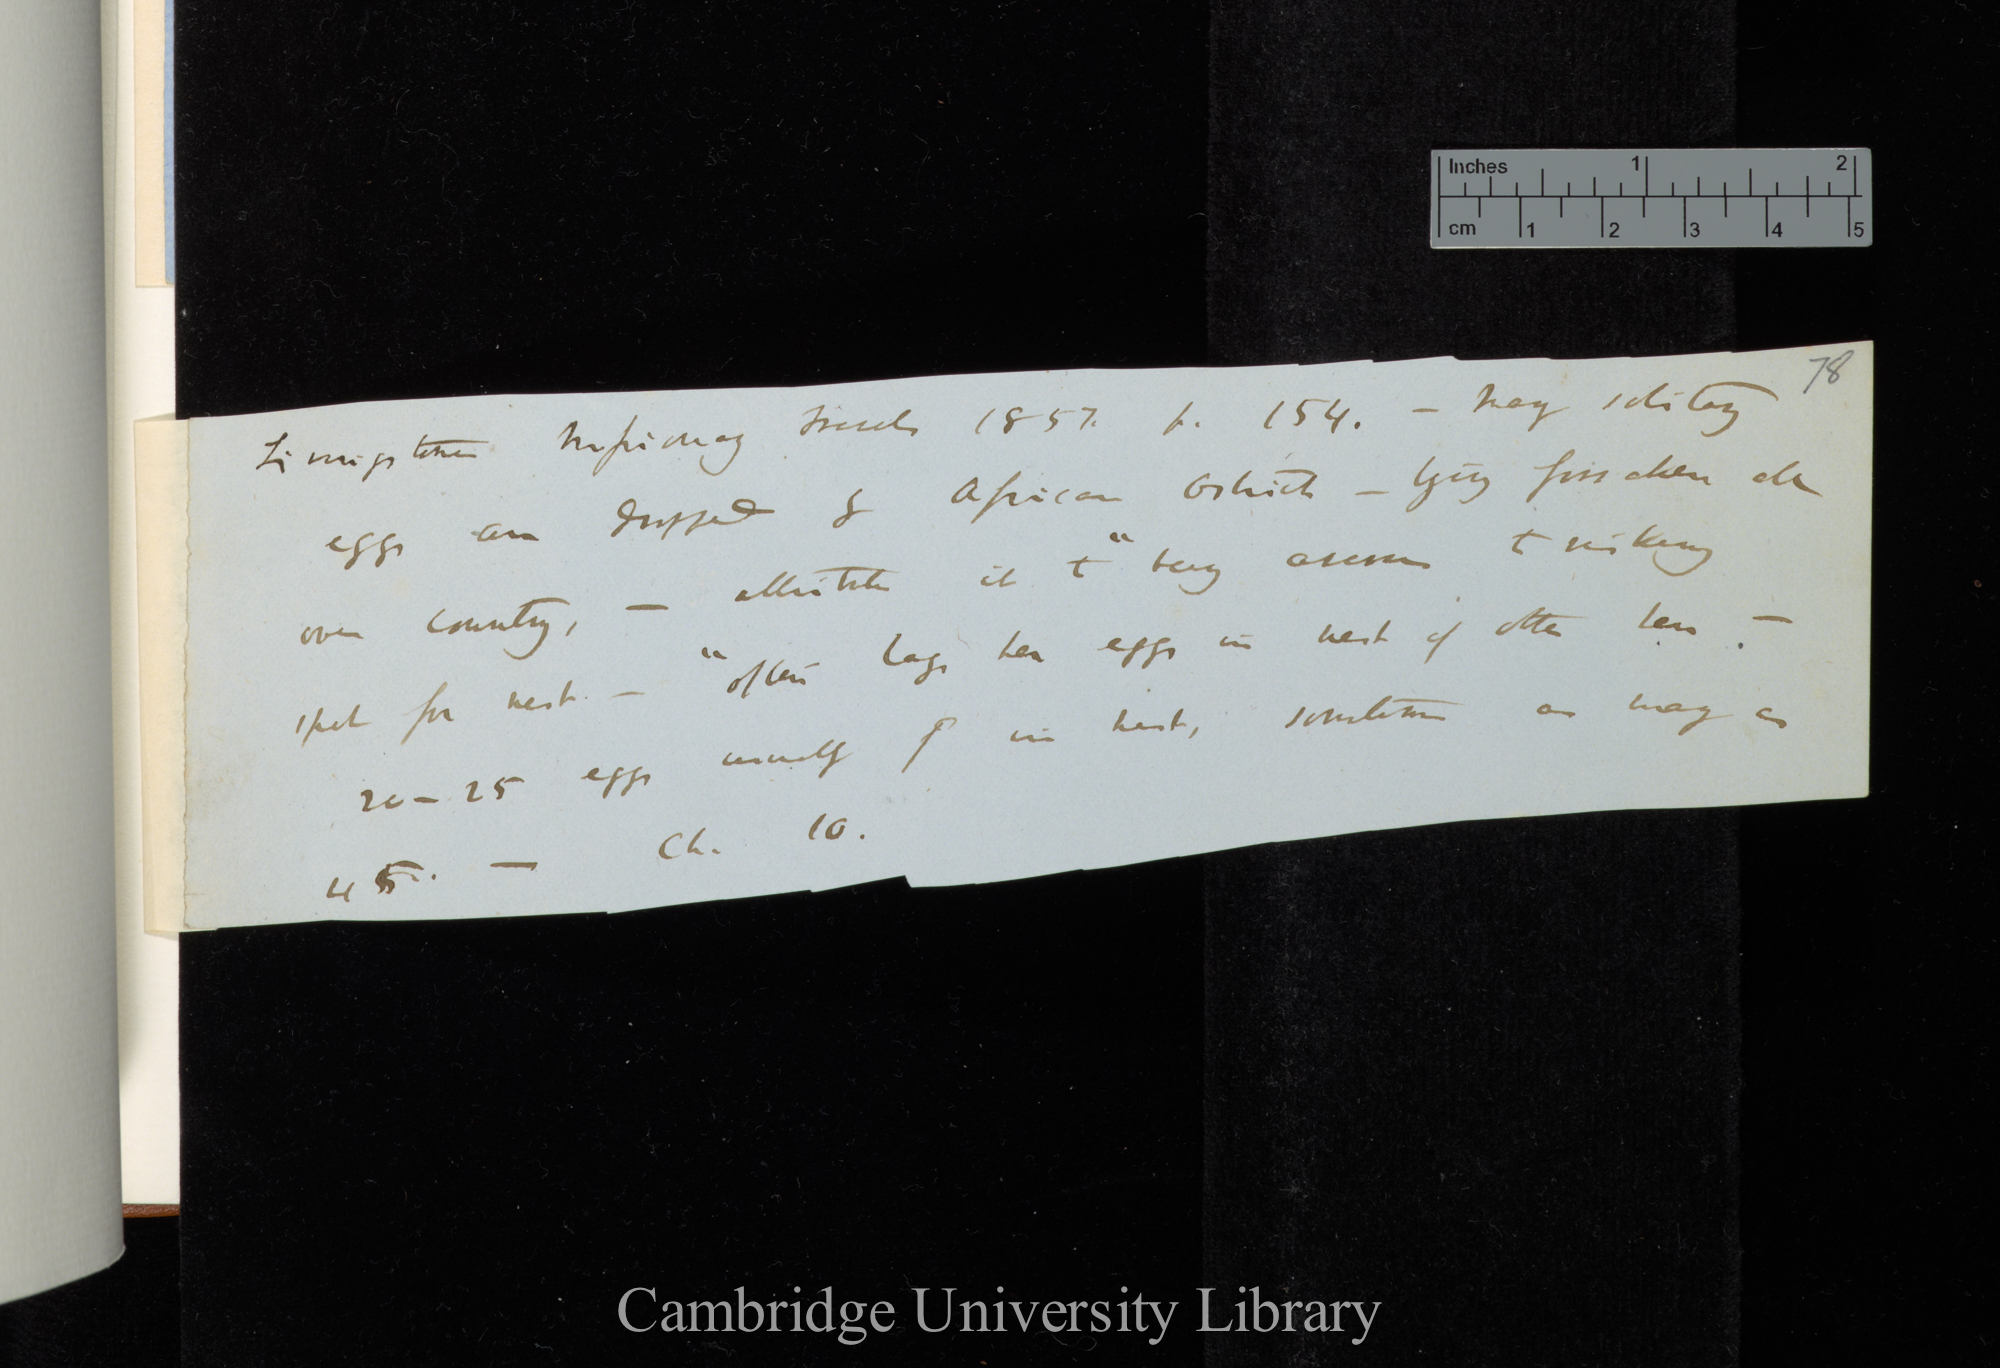 Inches 1 2
cm 1 2 3 4 5
78
Livingstone Missionary Travels 1857. p. 154. — Many solitary
eggs are dropped by African Ostrich — lying forsaken all
over country, — attribute it to "being averse to risking
spot for nest. — "often lays her eggs in nest of other hens. —
20–25 eggs usually in nest, sometimes as many as
45. — Ch. 10.
Cambridge University Library